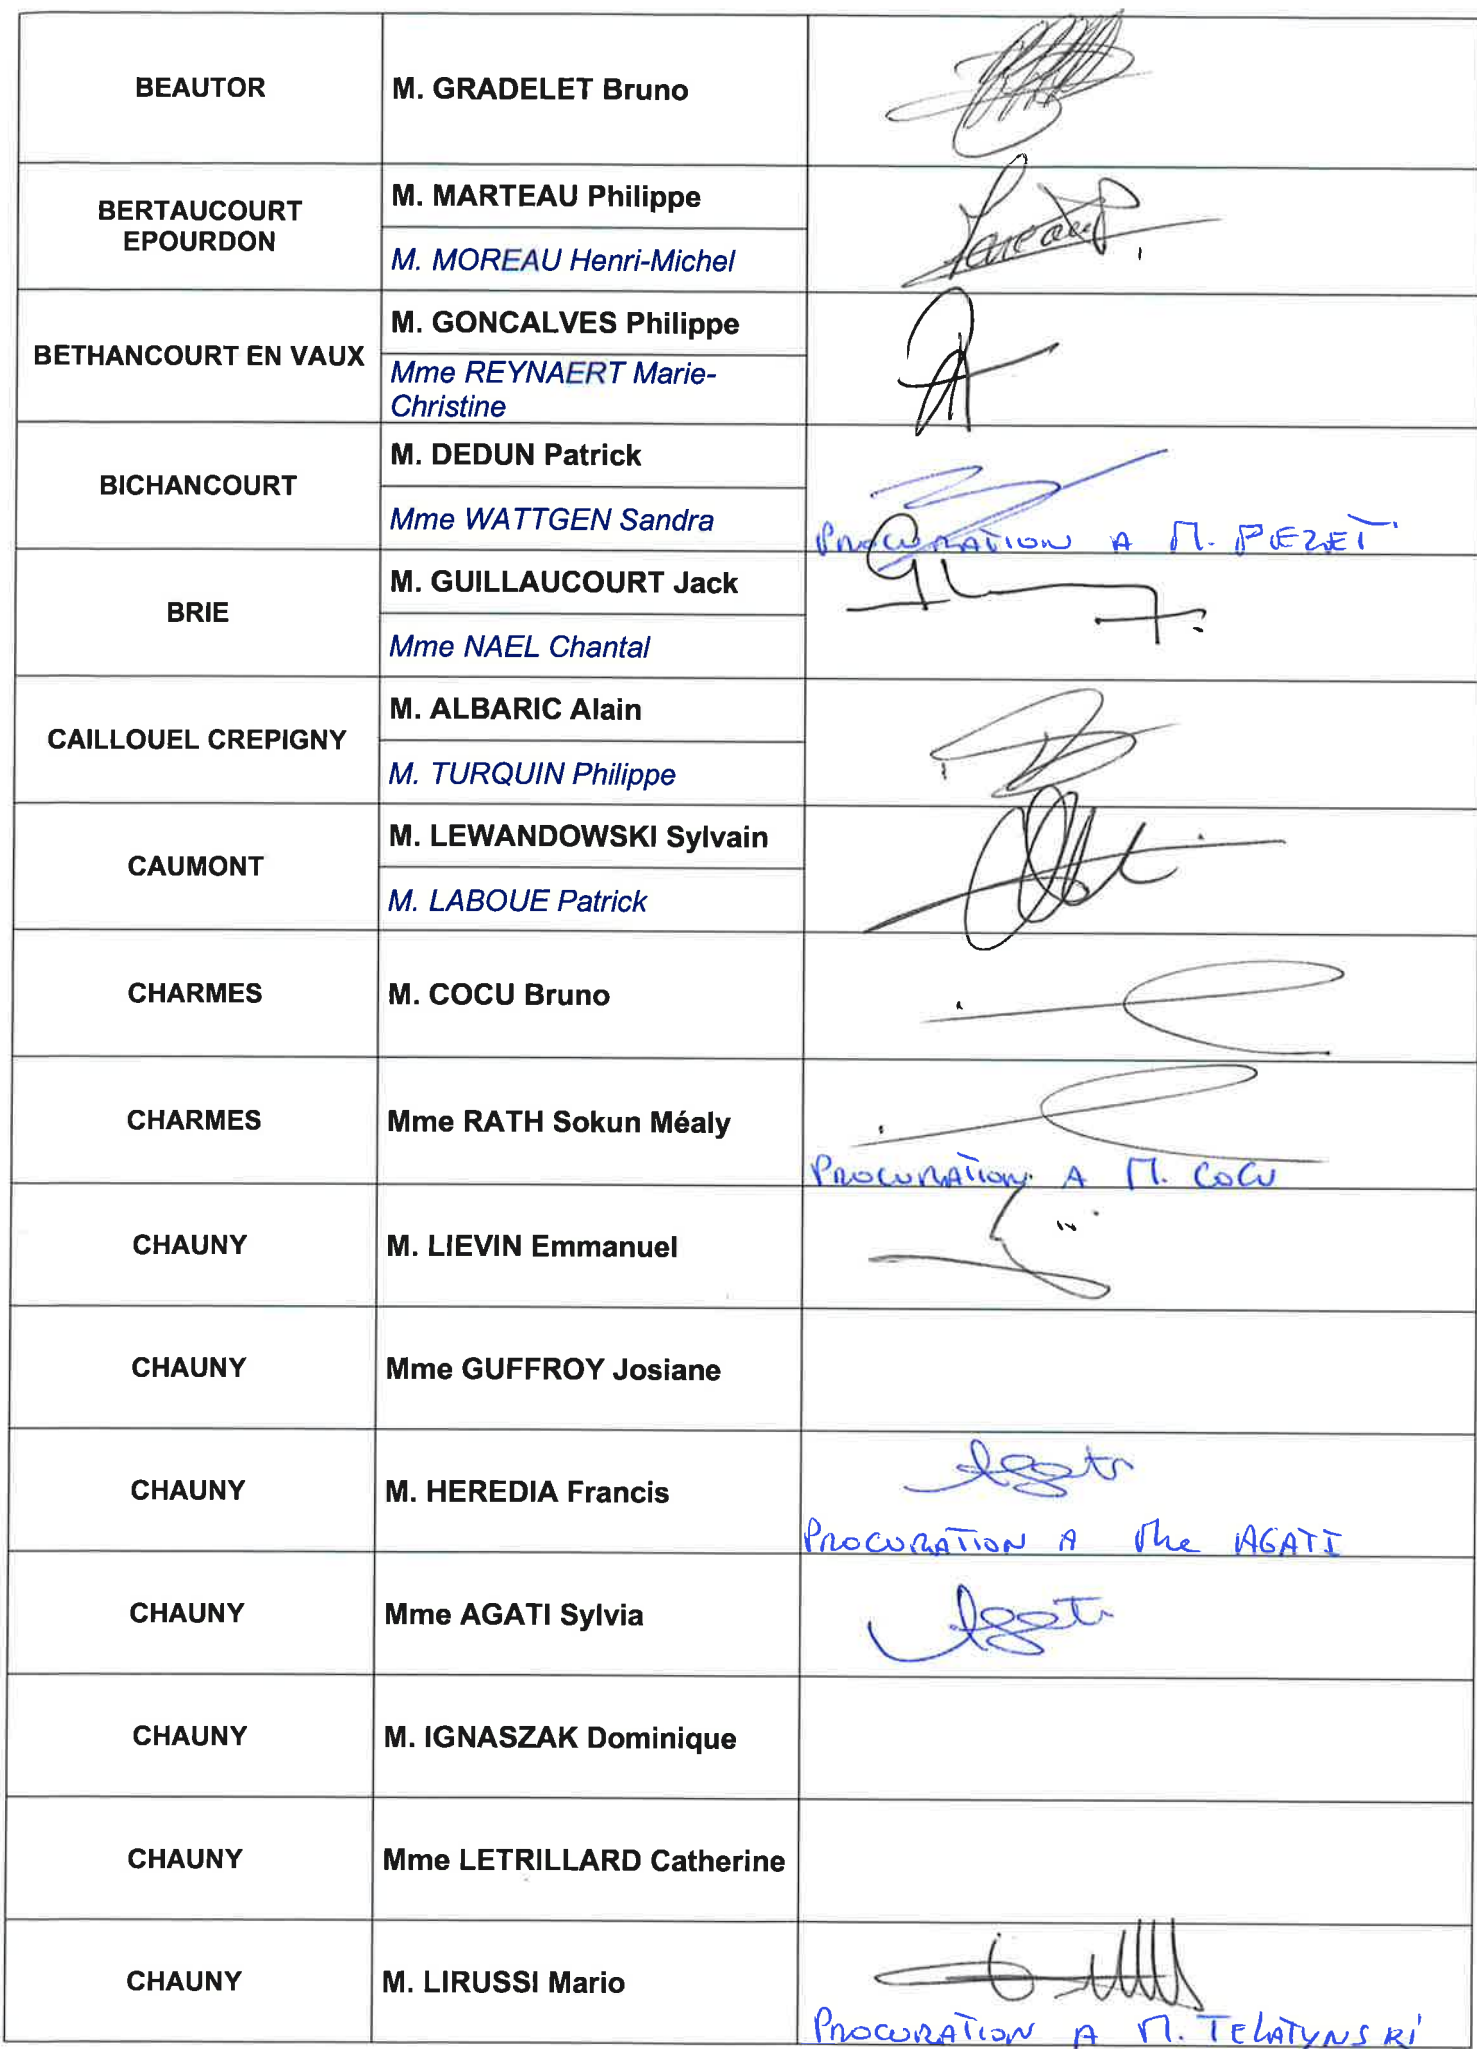 BEAUTOR
M. GRADELET Bruno
BERTAUCOURT
EPOURDON
M. MARTEAU Philippe
M. MOREAU Henri-Michel
BETHANCOURT EN VAUX
M. GONCALVES Philippe
Mme REYNAERT Marie-
Christine
BICHANCOURT
M. DEDUN Patrick
Mme WATTGEN Sandra
PROCURATION A M. PEZET
BRIE
M. GUILLAUCOURT Jack
Mme NAEL Chantal
CAILLOUEL CREPIGNY
M. ALBARIC Alain
M. TURQUIN Philippe
CAUMONT
M. LEWANDOWSKI Sylvain
M. LABOUE Patrick
CHARMES
M. COCU Bruno
CHARMES
Mme RATH Sokun Méaly
PROCURATION A M. COCU
CHAUNY
M. LIEVIN Emmanuel
CHAUNY
Mme GUFFROY Josiane
CHAUNY
M. HEREDIA Francis
Agati
PROCURATION A Mme AGATI
CHAUNY
Mme AGATI Sylvia
Agati
CHAUNY
M. IGNASZAK Dominique
CHAUNY
Mme LETRILLARD Catherine
CHAUNY
M. LIRUSSI Mario
PROCURATION A M. TELATYNSKI